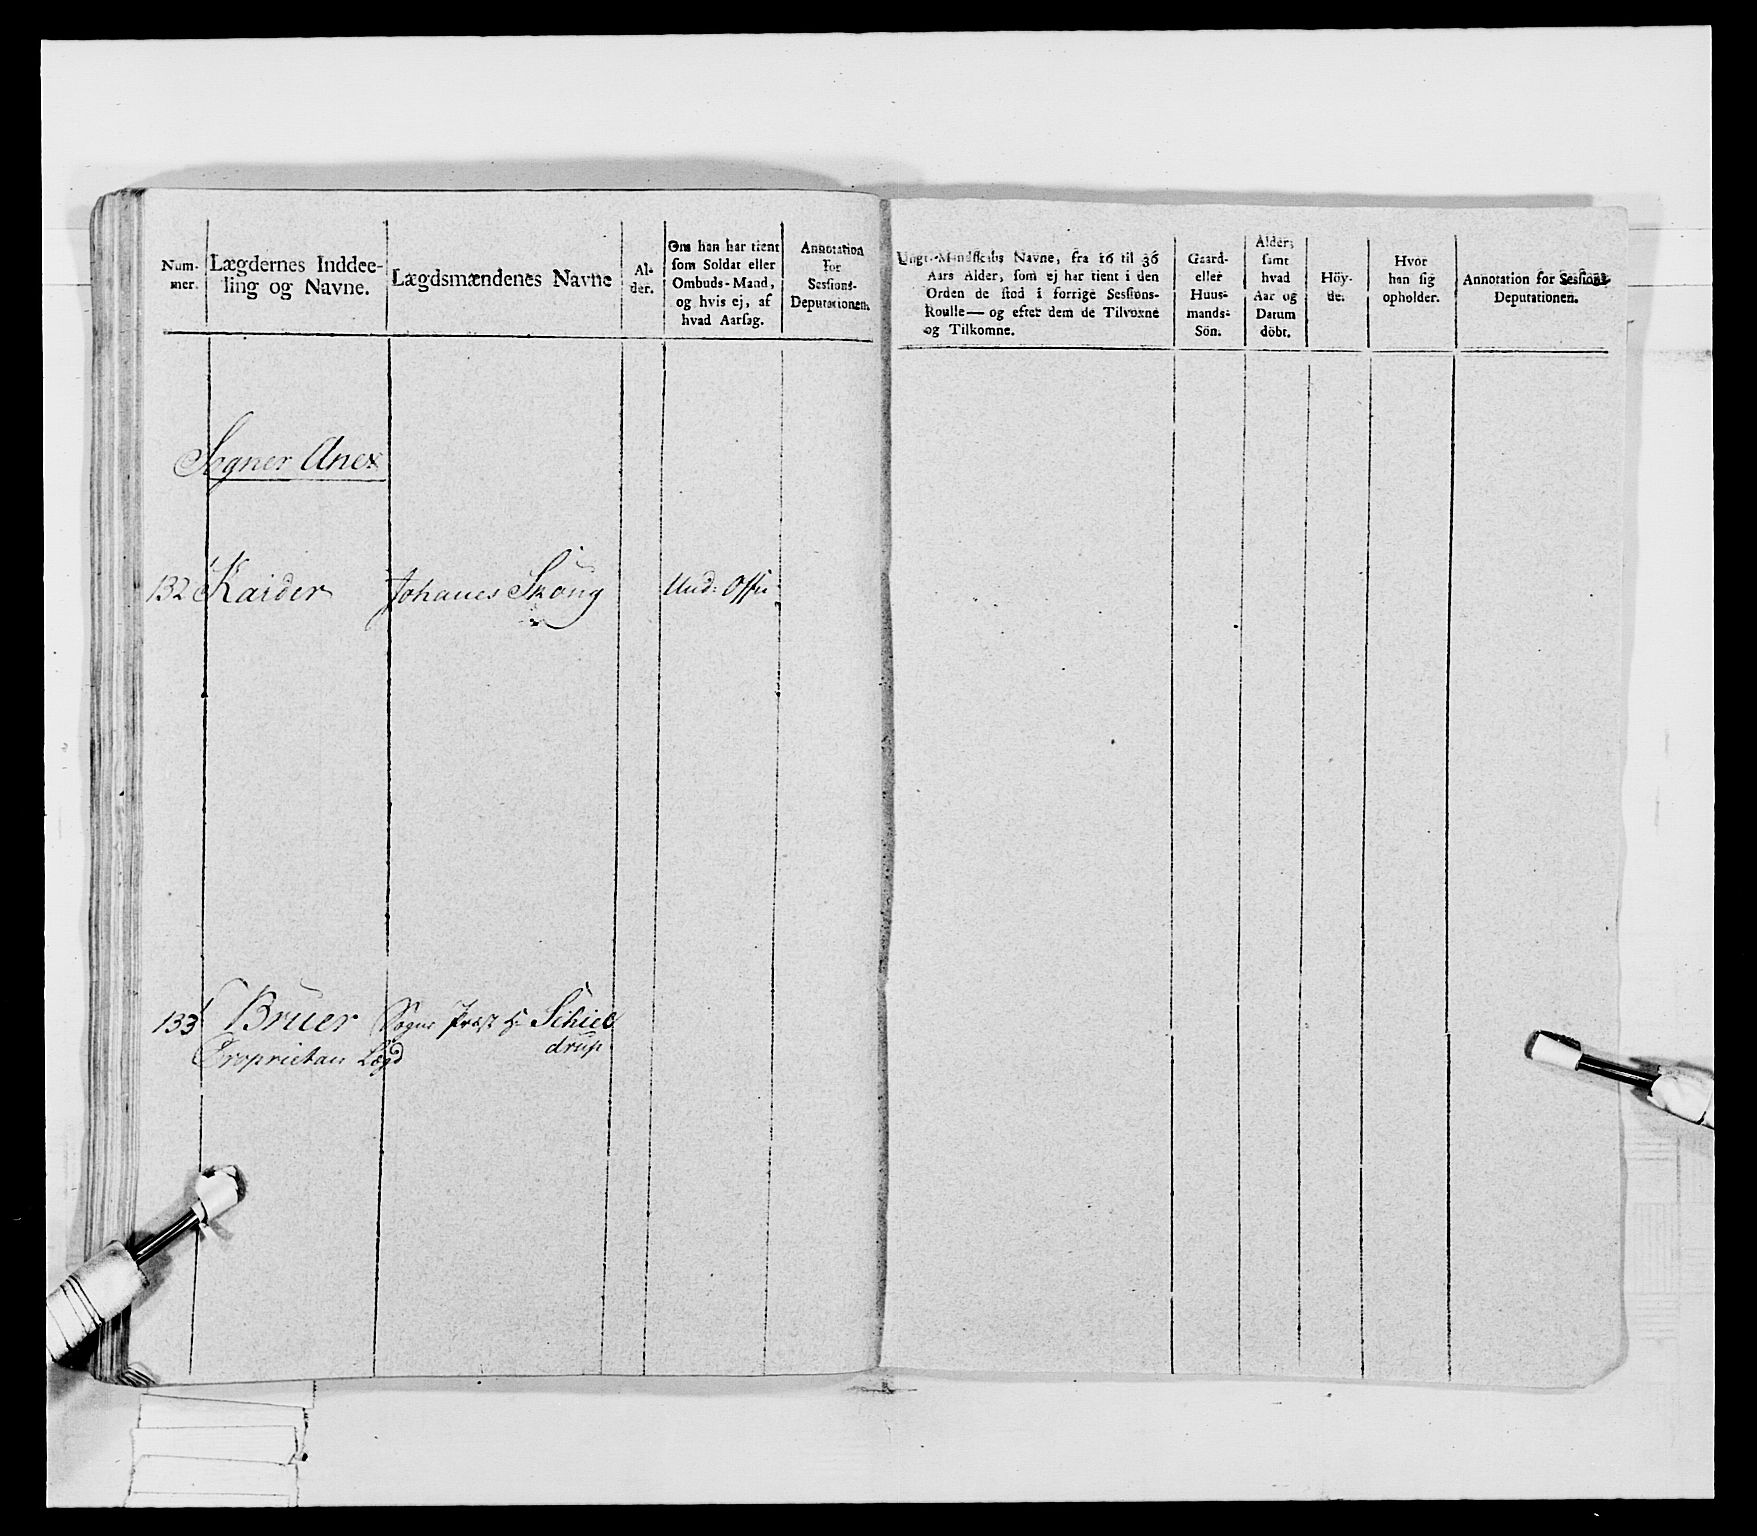 Num-
mer.
Lægdernes Inddee-
ling og Navne.
Lægdsmændenes Navne
Al-
der.
Om han har tient
som Soldat eller
Ombuds-Mand,
og hvis ej, af
hvad Aarsag.
Annotation
for
Sessions-
Deputationen.
Ungt-Mandskabs Navne, fra 16 til 36
Aars Alder, som ej har tient i den
Orden de stod i forrige Sessions-
Roulle — og efter dem de Tilvoxne
og Tilkomne.
Gaard-
eller
Huus-
mands-
Sön.
Alder,
samt
hvad
Aar og
Datum
döbt.
Höy-
de.
Hvor
han sig
opholder.
Annotation for Sessions-
Deputationen.
Sogner Anex
132 Kaider Johanes Skoug Und: Offi:
133 Bruer Sogne Præst Hr Schiel
drup
Proprietair Lægd